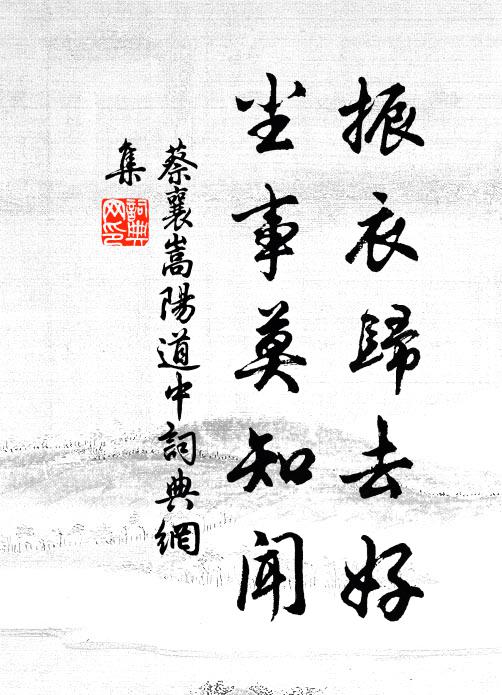 振衣歸去好
尘事莫知聞
蔡襄嵩陽道中詞典網
集
詞典
网印